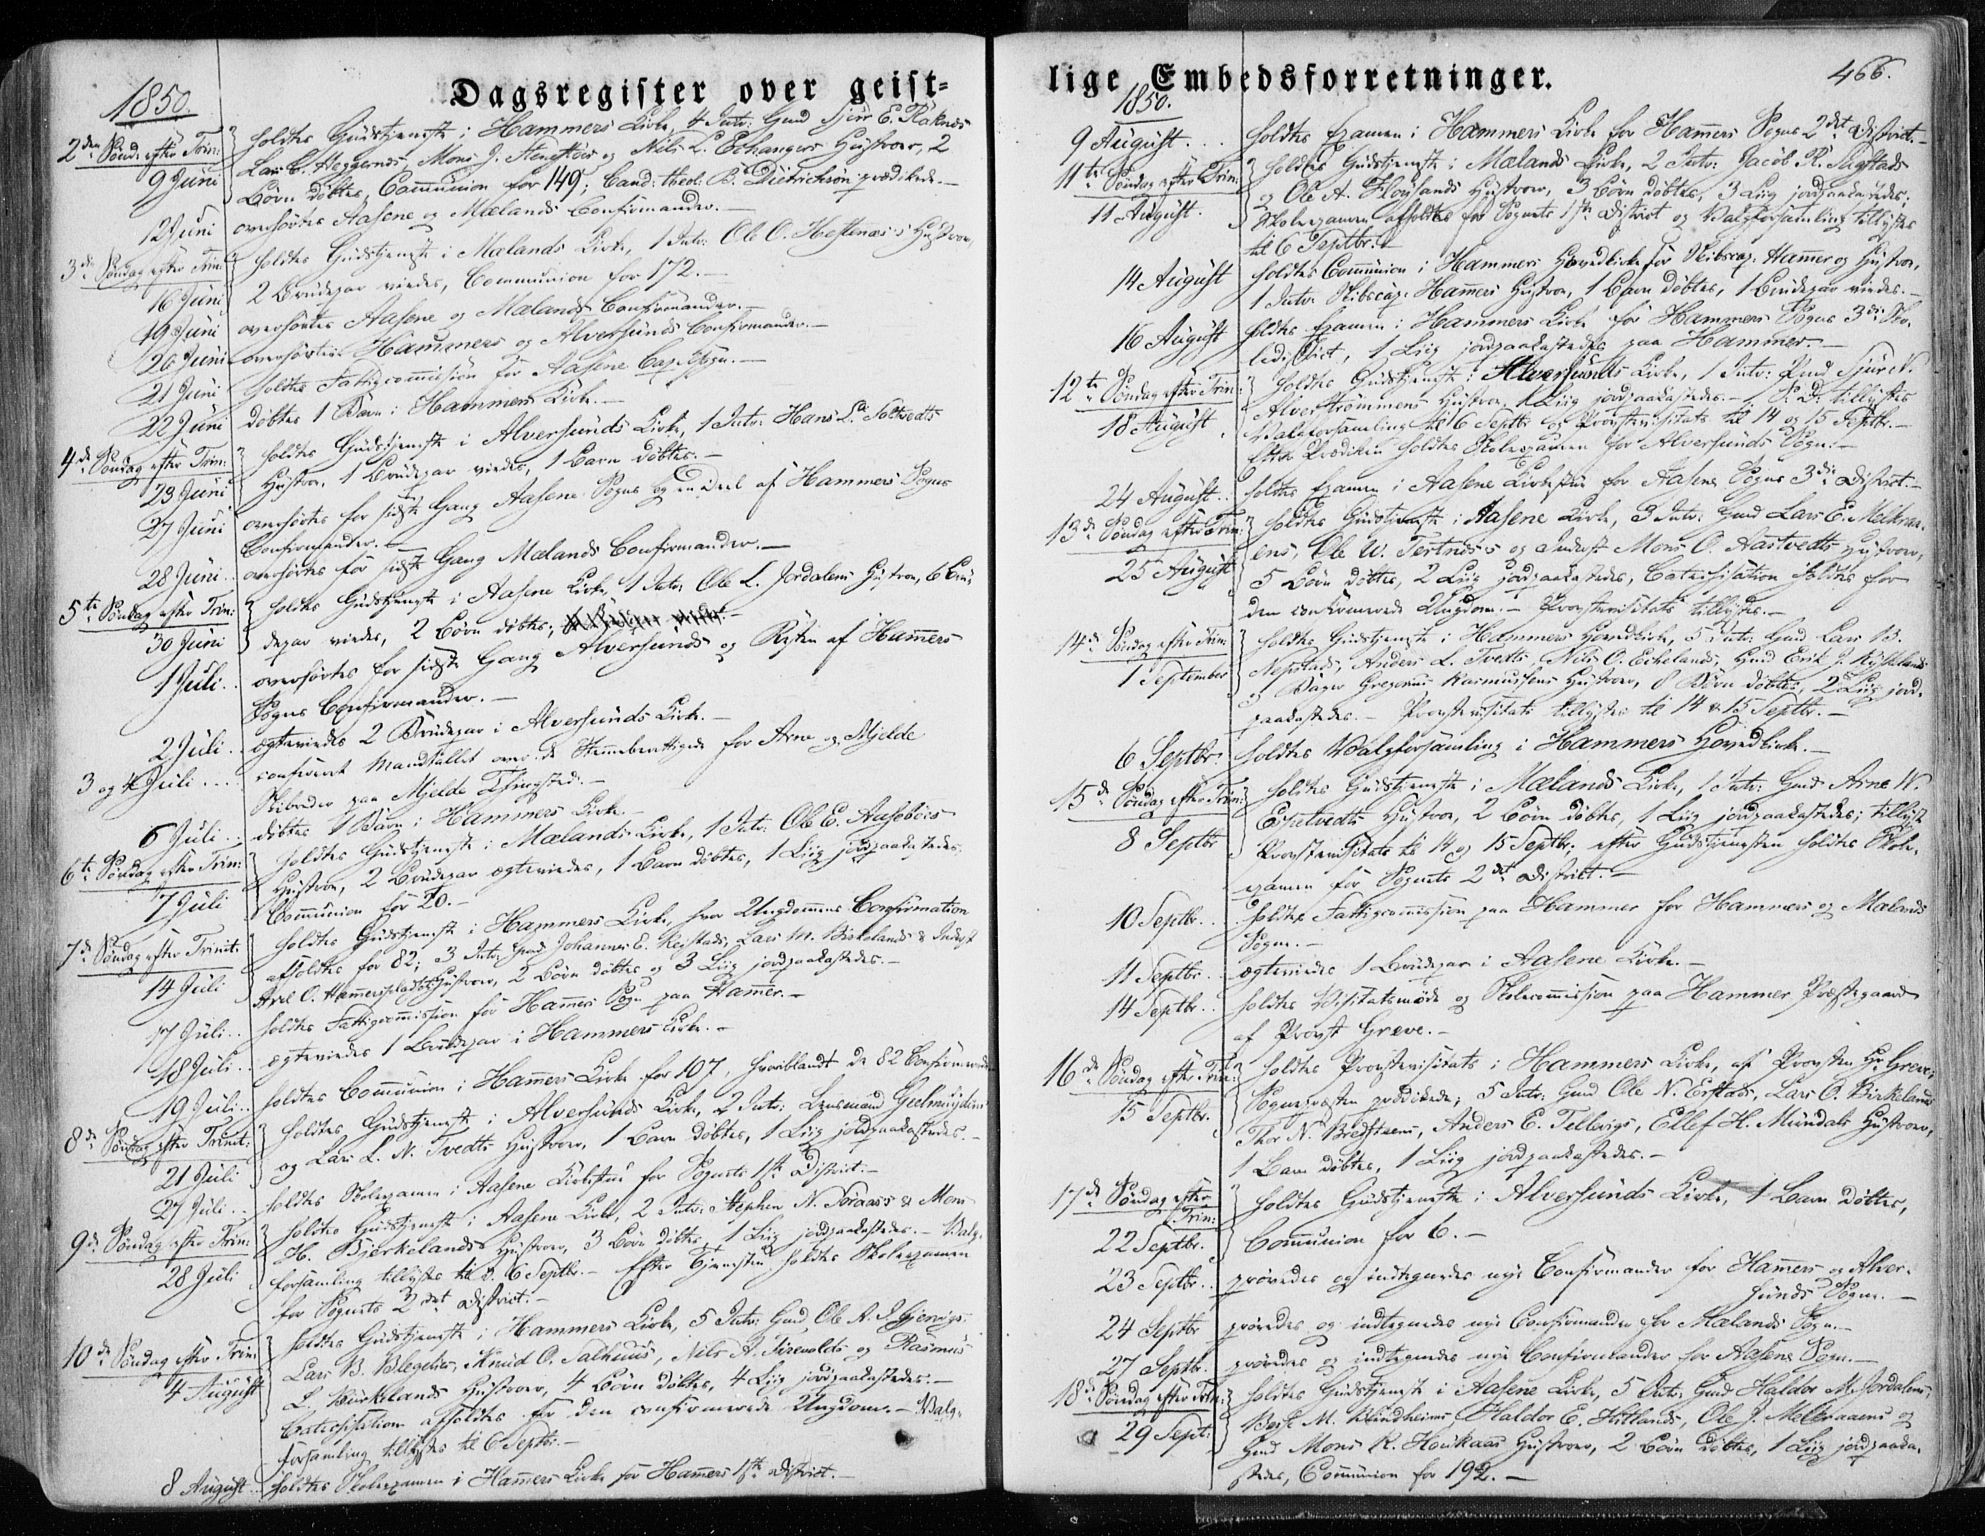 1850.
Dagsregister over geist-
2den Sønd: efter Trin:
9 Juni
holdtes Gudstjeneste i Hammers Kirke, 4 Intr: Gmd Sjur E. Røknes
Lars C. Heggernes, Mons J. Steinestøes og Nils L. Echangers Hustroer, 2
Børn døbtes, Communion for 149; Cand: theol: B. Dietrichson prædikede.—
12 Juni overhørtes Aasene og Mælands Confirmander.—
3de Søndag efter Trin:
16 Juni
holdtes Gudstjeneste i Mælands Kirke, 1 Intr: Ole O. Hestenæs's Hustroe,
2 Brudepar viedes, Communion for 172.—
19 Juni overhørtes Aasene og Mælands Confirmander.—
20 Juni overhørtes Hammers og Alversunds Confirmander.—
21 Juni holdtes Fattigcommission for Aasene Cap. Sogn.—
22 Juni døbtes 1 Barn i Hammers Kirke.—
4de Søndag efter Trin:
23 Juni
holdtes Gudstjeneste i Alversunds Kirke, 1 Intr: Hans L. Toftedts
Hustroe, 1 Brudepar viedes, 1 Barn døbtes.—
27 Juni overhørtes for sidste Gang Aasene Sogns og en Deel af Hammers Sogns
Confirmander.—
28 Juni.. overhørtes for sidste Gang Mælands Confirmander.—
5te Søndag efter Trin:
30 Juni
holdtes Gudstjeneste i Aasene Kirke, 1 Intr: Ole L. Jordalens Hustroe, 6 Bru-
depar viedes, 2 Børn døbtes,
1 Juli.. overhørtes for sidste Gang Alversunds og Resten af Hammers
Sogns Confirmander.—
2 Juli.. ægteviedes 2 Brudepar i Alversunds Kirke.—
3 og 4 Juli.... confereret Mandtallet over de Stemmeberettigede for Arne og Mjelde
Skibreder paa Mjelde Thingsted.—
6 Juli.. døbtes 1 Barn i Hammers Kirke.—
6te Søndag efter Trin:
7 Juli
holdtes Gudstjeneste i Mælands Kirke, 1 Intr: Ole E. Ausebøes
Hustroe, 2 Brudepar ægteviedes, 1 Barn døbtes, 1 Liig jordpaakastedes.
Communion for 20.—
7de Søndag efter Trinit:
14 Juli
holdtes Gudstjeneste i Hammers Kirke, hvor Ungdommens Confirmation
afholdtes for 82; 3 Intr: Gmd Johannes E. Rejstads, Lars M. Birkelands & Inderst
Axel O. Hammerspladsets Hustroer, 2 Børn døbtes og 3 Liig jordpaakastedes.—
17 Juli.. holdtes Fattigcommission for Hammers Sogn paa Hammer.—
18 Juli.. ægteviedes 1 Brudepar i Hammers Kirke.—
19 Juli.. holdtes Communion i Hammers Kirke for 107, hvoriblandt de 82 Confirmerede
8de Søndag efter Trinit:
21 Juli
holdtes Gudstjeneste i Alversunds Kirke, 2 Intr: Lensmand Gjelmuydens
og Lars L. N. Tvedts Hustroer, 1 Barn døbtes, 1 Liig jordpaakastedes.—
27 Juli.. holdtes Skoleexamen i Aasene Kirkestue for Sognets 1ste District.—
9de Søndag efter Trin:
28 Juli
holdtes Gudstjeneste i Aasene Kirke, 2 Intr: Stephen N. Toraass & Mons
H. Bjerkelands Hustroer, 3 Børn døbtes, 1 Liig jordpaakastedes.— Valg-
forsamling tillystes til d. 6 Septbr.— Efter Tjenesten holdtes Skoleexamen
for Sognets 2det District.—
10de Søndag efter Trin:
4 August
holdtes Gudstjeneste i Hammers Kirke, 5 Intr: Gmd Ole A. I. Gjervigs,
Lars B. Blegelies, Knud O. Salhuus, Nils A. Tirevolds og Rasmus
L. Birkelands Hustroer, 4 Børn døbtes, 4 Liig jordpaakastedes.—
Catechisation afholdtes for den confirmerede Ungdom.— Valg-
forsamling tillystes til 6 Septbr.—
8 August.. holdtes Skoleexamen i Hammers Kirke for Hammers 1ste District.—
lige Embedsforretninger.
466.
1850.
9 August... holdtes Examen i Hammers Kirke for Hamers Sogns 2det District.—
11te Søndag efter Trin:
11 August.
holdtes Gudstjeneste i Mælands Kirke, 2 Intr: Jacob R. Sagstads
og Ole A. Fløyslands Hustroer, 3 Børn døbtes, 3 Liig jordpaakastedes;
Skoleexamen afholdtes for Sognets 1ste District og Valgforsamling tillystes
til 6 Septbr.—
14 August holdtes Communion i Hammers Hovedkirke for Skibscap. Hamer og Hustroe,
1 Intr: Skibscap. Hamers Hustroe, 1 Barn døbtes, 1 Brudepar viedes.—
16 August holdtes Examen i Hammers Kirke for Hammers Sogns 3de Sko-
ledistrict, 1 Liig jordpaakastedes paa Hammer.—
12te Søndag efter Trin:
18 August.
holdtes Gudstjeneste i Alversunds Kirke, 1 Intr: Gmd Sjur N.
Alverstrømmens Hustroe, 1 Liig jordpaakastedes.— S. D. tillystes
Valgforsamling til 6 Septbr og Provstevisitats til 14 og 15 Septbr.—
Efter Prædiken holdtes Skoleexamen for Alversunds Sogn.—
24 August.. holdtes Examen i Aasene Kirkestue for Aasene Sogns 3de District.—
13de Søndag efter Trin:
25 August
holdtes Gudstjeneste i Aasene Kirke, 3 Intr: Gmd Lars E. Meltraa-
ens, Ole W. Tertnæs's og Inderst Mons O. Aastvedts Hustroer,
5 Børn døbtes, 2 Liig jordpaakastedes, Catechisation holdtes for
den confirmerede Ungdom.— Provstevisitats tillystes.—
14de Søndag efter Trin:
1 September
holdtes Gudstjeneste i Hammers Hovedkirke, 5 Intr: Gmd Lars B.
Nepstads, Anders L. Tvedts, Nils O. Eikelands, Gmd Erik J. Rysslands
og Bager Gregorius Rasmussens Hustroer, 8 Børn døbtes, 2 Liig jord-
paakastedes.— Provstevisitats tillystes til 14 & 15 Septbr.—
6 Septbr. holdtes Valgforsamling i Hammers Hovedkirke.—
15de Søndag efter Trin:
8 Septbr
holdtes Gudstjeneste i Mælands Kirke, 1 Intr: Gmd Arne W.
Espetvedts Hustroe, 2 Børn døbtes, 1 Liig jordpaakastedes; tillyst
Provstevisitats til 14 og 15 Septbr; efter Gudstjenesten holdtes Skole-
examen for Sognets 2det District.—
10 Septbr. holdtes Fattigcommission paa Hammer for Hammers og Mælands
Sogne.—
11 Septbr.. ægteviedes 1 Brudepar i Aasene Kirke.—
14 Septbr.. holdtes Visitatsmøde og Skolecommission paa Hammer Præstegaard
af Provst Greve.—
16de Søndag efter Trin:
15 Septbr.
holdtes Provstevisitats i Hammers Kirke, af Provsten Hr Greve;
Sognepræsten prædikede; 5 Intr: Gmd Ole N. Erstads, Lars O. Birkelands
Thor N. Bredsteens, Anders E. Tellevigs, Ellef H. Mundals Hustroer,
1 Barn døbtes, 1 Liig jordpaakastedes.—
17de Søndag efter
Trin:
22 Septbr.
holdtes Gudstjeneste i Alversunds Kirke, 1 Barn døbtes,
Communion for 6.—
23 Septbr.. prøvedes og indtegnedes nye Confirmander for Hamers og Alver-
sunds Sogne.—
24 Septbr prøvedes og indtegnedes nye Confirmander for Mælands Sogn.—
27 Septbr. prøvedes og indtegnedes nye Confirmander for Aasene Sogn.—
18de Søndag efter Trin:
29 Sept:
holdtes Gudstjeneste i Aasene Kirke, 5 Intr: Gmd Haldor M. Jordalens,
Børge M. Blindheims, Haldor E. Hitlands, Ole J. Meltraaens og
Gmd Mons K. Houkaas Hustroer, 2 Børn døbtes, 1 Liig jordpaaka-
stedes, Communion for 192.—